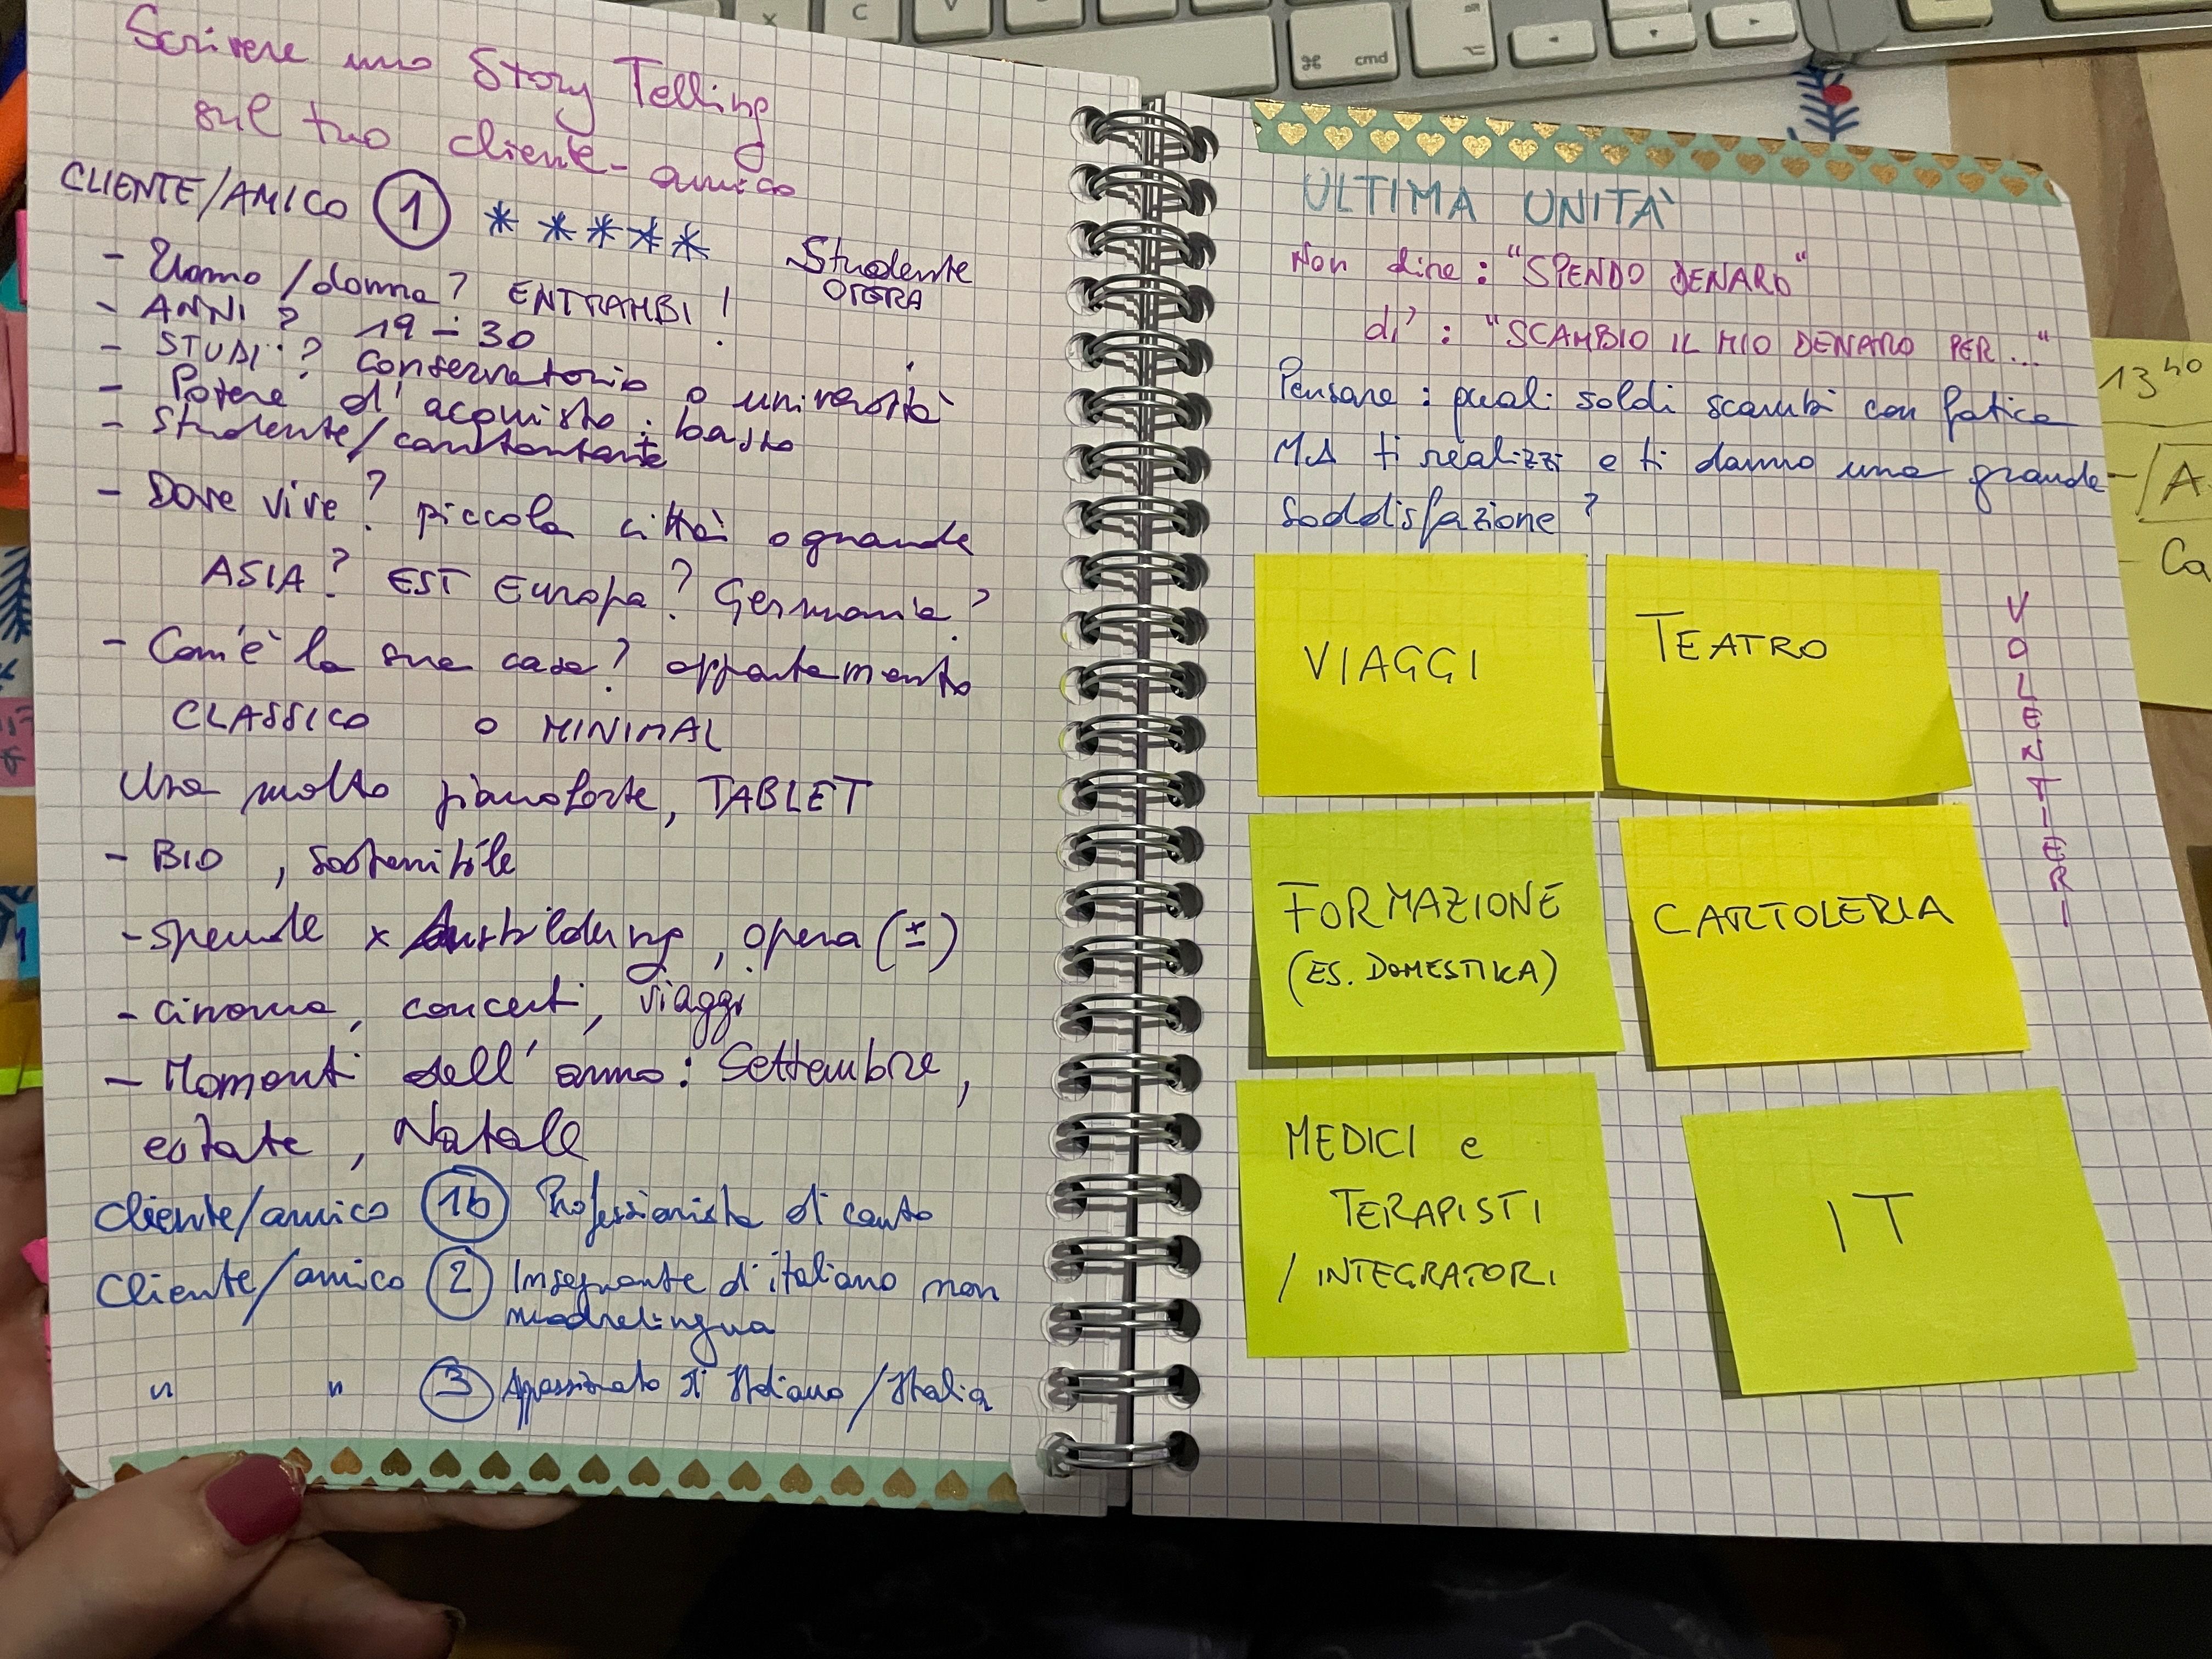 Scrivere uno Story Telling
sul tuo cliente-amico
CLIENTE/AMICO 1 * * * * *
Studente
OPERA
- Uomo/donna? ENTRAMBI!
- ANNI? 19-30
- STUDI? Conservatorio o università
- Potere d'acquisto: basso
- Studente/cantante
- Dove vive? piccola città o grande
ASIA? EST Europa? Germania?
- Com'è la sua casa? appartamento
CLASSICO o MINIMAL
Usa molto pianoforte, TABLET
- BIO, sostenibile
- spende x Ausbildung, opera (±)
- cinema, concerti, viaggi
- Momenti dell'anno: Settembre,
estate, Natale
Cliente/amico 1b Professionista di canto
Cliente/amico 2 Insegnante d'italiano non
madrelingua
" " 3 Appassionato di Italiano/Italia
ULTIMA UNITÀ
Non dire: "SPENDO DENARO"
di': "SCAMBIO IL MIO DENARO PER..."
Pensare: quali soldi scambi con fatica
MA ti realizzi e ti danno una grande
soddisfazione?
VIAGGI
TEATRO
VOLENTIERI
FORMAZIONE
(ES. DOMESTIKA)
CARTOLERIA
MEDICI e
TERAPISTI
/INTEGRATORI
IT
13 40
A
Ca
X
C
V
⌘ cmd
⌥